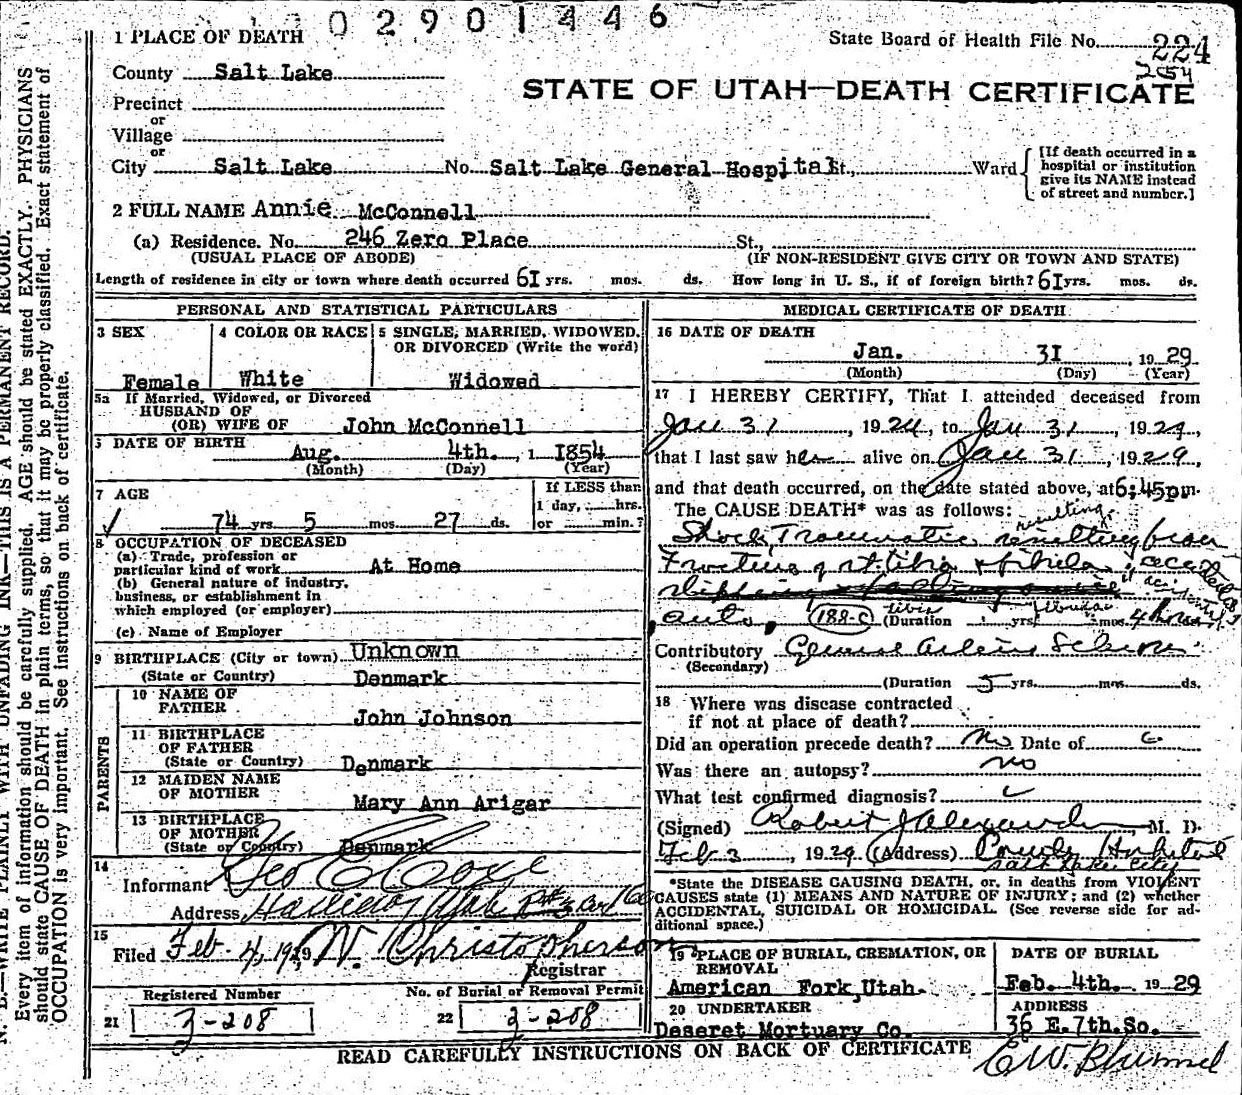 0 2 9 0 1 4 4 6
1 PLACE OF DEATH
State Board of Health File No. 224
2054
County Salt Lake
STATE OF UTAH—DEATH CERTIFICATE
Precinct
or
Village
or
City Salt Lake No. Salt Lake General Hospital St., Ward
[If death occurred in a
hospital or institution
give its NAME instead
of street and number.]
2 FULL NAME Annie McConnell
(a) Residence. No. 246 Zero Place St.,
(USUAL PLACE OF ABODE) (IF NON-RESIDENT GIVE CITY OR TOWN AND STATE)
Length of residence in city or town where death occurred 61 yrs. mos. ds. How long in U. S., if of foreign birth? 61 yrs. mos. ds.
PERSONAL AND STATISTICAL PARTICULARS
3 SEX
Female
4 COLOR OR RACE
White
5 SINGLE, MARRIED, WIDOWED,
OR DIVORCED (Write the word)
Widowed
5a If Married, Widowed, or Divorced
HUSBAND OF
(OR) WIFE OF John McConnell
DATE OF BIRTH
Aug. 4th. 1 1854
(Month) (Day) (Year)
7 AGE
74 yrs 5 mos. 27 ds.
If LESS than
1 day, hrs.
or min.?
8 OCCUPATION OF DECEASED
(a) Trade, profession or
particular kind of work At Home
(b) General nature of industry,
business, or establishment in
which employed (or employer)
(c) Name of Employer
9 BIRTHPLACE (City or town) Unknown
(State or Country) Denmark
PARENTS
10 NAME OF
FATHER John Johnson
11 BIRTHPLACE
OF FATHER
(State or Country) Denmark
12 MAIDEN NAME
OF MOTHER Mary Ann Arigar
13 BIRTHPLACE
OF MOTHER
(State or Country) Denmark
14
Informant Geo E Coxe
Address
15
Filed Feb - 4, 1929 W. Christopherson
Registrar
Registered Number
21 3-208
No. of Burial or Removal Permit
22 3-208
MEDICAL CERTIFICATE OF DEATH
16 DATE OF DEATH
Jan. 31 , 19 29
(Month) (Day) (Year)
17 I HEREBY CERTIFY, That I attended deceased from
Jan 31 , 1929, to Jan 31 , 1929,
that I last saw her alive on Jan 31 , 1929,
and that death occurred, on the date stated above, at 6:45pm.
The CAUSE DEATH* was as follows:
resulting
Shock, Traumatic resulting from
Fracture of tibia & fibula
auto, (188-c) (Duration yrs. mos. 4 hours
Contributory General Arterio Sclerosis
(Secondary)
(Duration 5 yrs. mos. ds.
18 Where was disease contracted
if not at place of death?
Did an operation precede death? No Date of
Was there an autopsy? no
What test confirmed diagnosis?
(Signed) Robert J Alexander, M. D.
Feb 3 , 1929 (Address) County Hospital
Salt Lake City
*State the DISEASE CAUSING DEATH, or, in deaths from VIOLENT
CAUSES state (1) MEANS AND NATURE OF INJURY; and (2) whether
ACCIDENTAL, SUICIDAL OR HOMICIDAL. (See reverse side for ad-
ditional space.)
19 PLACE OF BURIAL, CREMATION, OR
REMOVAL
American Fork, Utah.
DATE OF BURIAL
Feb. 4th. 19 29
20 UNDERTAKER
Deseret Mortuary Co.
ADDRESS
36 E. 7th. So.
READ CAREFULLY INSTRUCTIONS ON BACK OF CERTIFICATE
N. B.—WRITE PLAINLY WITH UNFADING INK—THIS IS A PERMANENT RECORD.
Every item of information should be carefully supplied. AGE should be stated EXACTLY. PHYSICIANS
should state CAUSE OF DEATH in plain terms, so that it may be properly classified. Exact statement of
OCCUPATION is very important. See instructions on back of certificate.